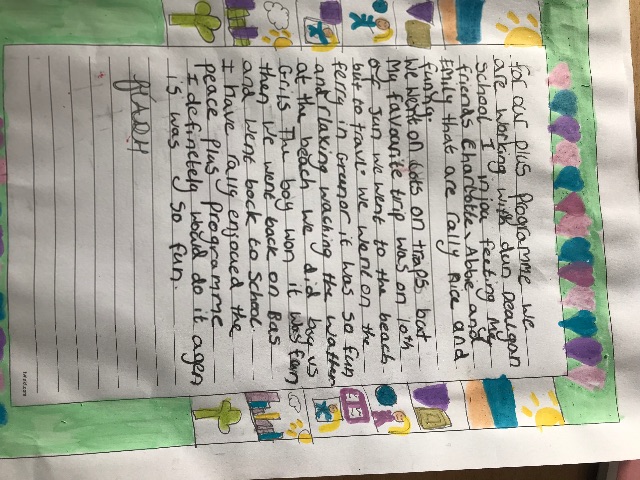 for our plus programme we
are working with dun Dealgan
school I injoa feeting my
friends Charlotte Abbie and
Emily that are rally nice and
funny.
we went on lots on traps but
My favourite trip was on 10th
of Jun we went to the beach
but to travle we went on the
ferry in Grenor it was so fun
and rlaxing waching the watter
at the beach we did boy vs
Grils The boy won it was fun
then we went back on Bas
and went back to school
I have rally enjoued the
Peace plus programme
I definetely would do it agen
is was so fun.
twinkl.com